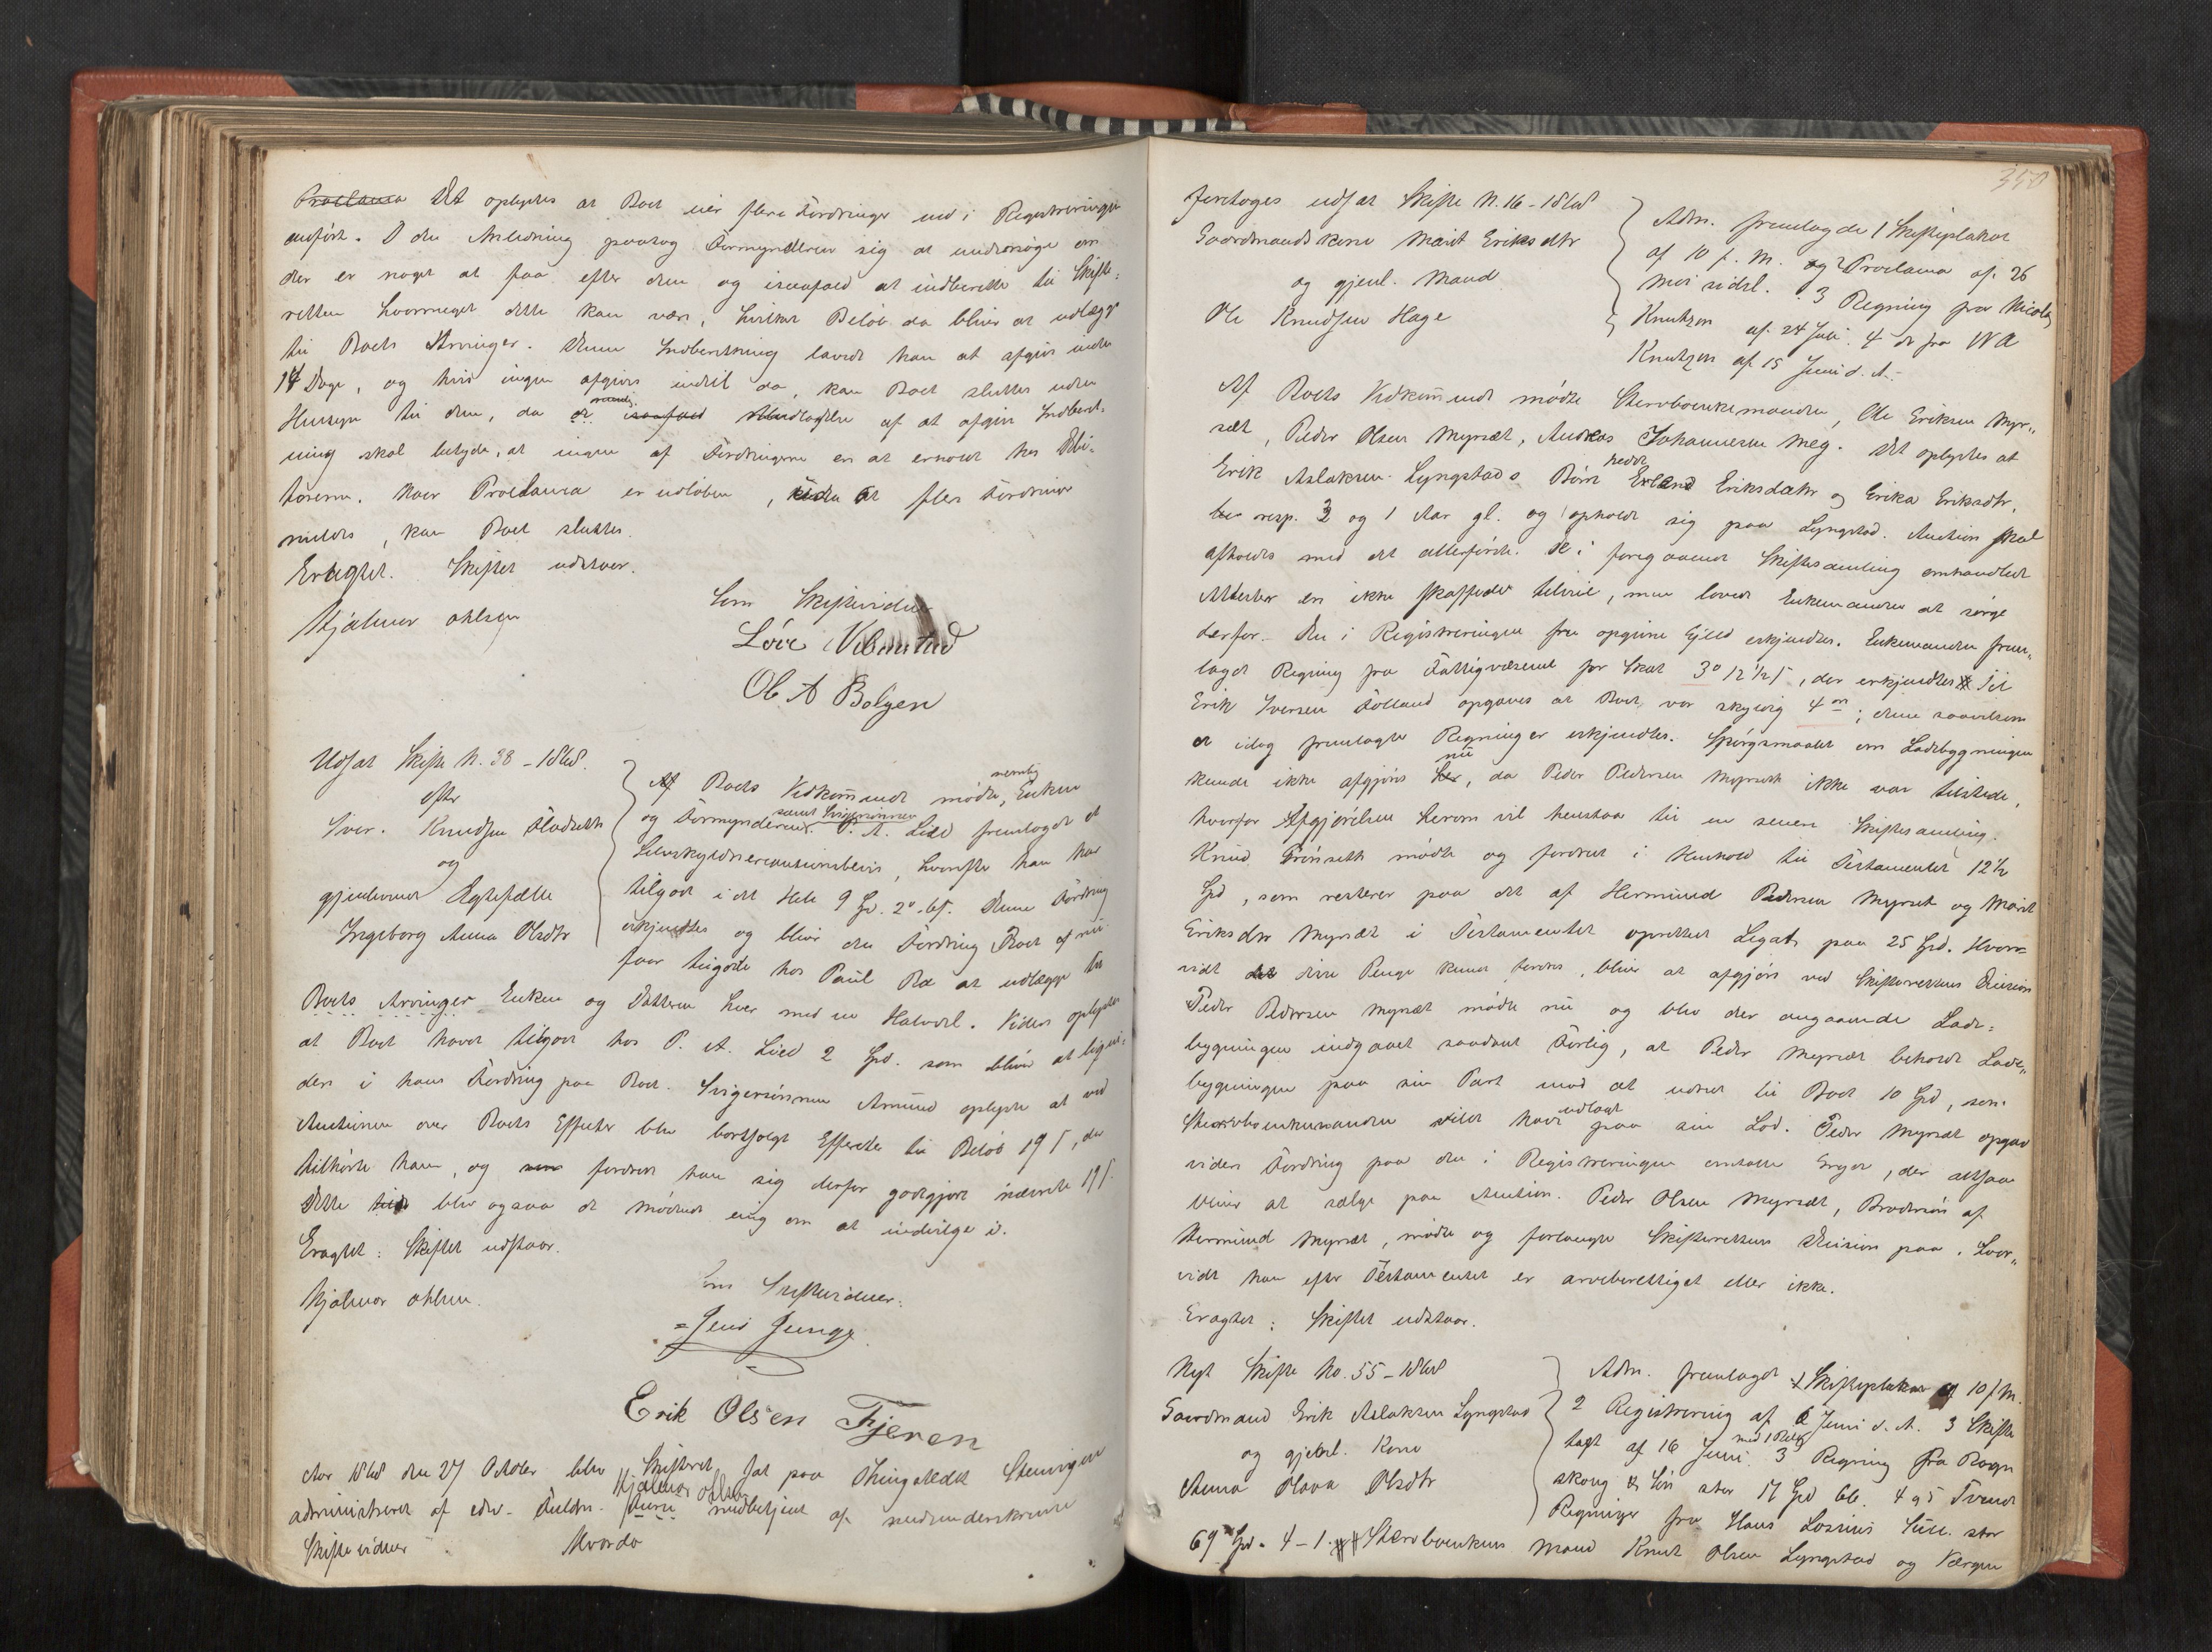 Proclama Det oplystes at Boet eier flere Fordringer end i Registreringen
anført. I den Anledning paatog Formynderen sig at undersøge om
der er noget at faa efter dem og isaafald at indberette til Skifte-
retten hvormeget dette kan være, hvilket Beløb da bliver at udlægge
til Boets Arvinger. Denne Indberetning lovede han at afgive inden
14 Dage, og hvis ingen afgives indtil da, kan Boet sluttes uden
Hensyn til dem, da en isaafald Undladelse af at afgive Indberet-
ning skal betyde, at ingen af Fordringerne er at erholde hos Debi-
torerne. Naar Proclama er udløben, uden at flere Fordringer
meldes, kan Boet sluttes.
Eragtet. Skiftet udstaar.
Hjalmar Ohlsen
Som Skiftevidner
Ole A Bolgen
Udsat Skifte N. 38 - 1868.
efter
Iver Knudsen
og
gjenlevende Ægtefælle
Ingeborg Anna Olsdtr
Af Boets Vedkommende mødte, nemlig Enken
og Formynderen samt Svigersønnen P. A. Lied fremlagde et
Selvskyldnercautionsbevis, hvorefter han har
tilgode i det Hele 9 Spd. 2 . Denne Fordring
erkjendtes og bliver den Fordring Boet
faar tilgode hos Paul at udlægge til
Boets Arvinger Enken og Datteren hver med en Halvdel. Videre oplystes
at Boet havde tilgode hos P. A. Lied 2 Spd. som bliver at
i hans Fordring paa Boet. Svigersønnen Amund oplyste at ved
Auctionen over Boets Effecter blev bortsolgt Effecter til Beløb 19 ß, der
tilhørte ham, og fordrede han sig derfor godtgjort nævnte 19 ß.
Dette blev ogsaa de mødende enig om at indvilge i.
Eragtet: Skiftet udstaar.
Hjalmar Ohlsen.
som Skiftevidner:
Jens
Erik Olsen Fjeren
Aar 1868 den 27 October blev Skifteret sat paa Thingstedet
administreret af edsv. Fuldm. Hjalmar Ohlsen medbetjent af medunderskrevne
Skiftevidner Hvorda
350
foretoges udsat Skifte N. 16 - 1868
Gaardmands kone Marit Eriksdtr
og gjenl. Mand
Ole Knudsen Hage
Adm. fremlagde 1 Skifteplakat
af 10 f. M. og 2 Proclama af 26
Mai sidstl. 3 Regning fra Nicolay
Knudtzon af 24 Juli. 4 do fra
Knudtzon af 15 Juni d. A.
Af Boets Vedkommende mødte Stervboenkemanden, Ole Eriksen Myr-
sæt, Peder Olsen Myrsæt, Andreas Johannesen Meg. Det oplystes at
Erik Aslaksen Lyngstads Børn hedde Eriksdatr og Erika Eriksdtr,
resp. 3 og 1 Aar gl. og opholde sig paa Lyngstad. Auction skal
afholdes med det allerførste. De i foregaaende Skiftesamling omhandlede
Attester er ikke skaffede tilveie, men lovede Enkemanden at sørge
derfor. Den i Registreringen før opgivne Gjeld erkjendtes. Enkemanden frem-
lagde Regning fra Fattigvæsenet for Skat 3 12 1/2 ß, der erkjendtes Til
Erik Iversen Folland opgaves at Boet var skyldig 4 ; denne saavelsom
de idag fremlagte Regninger erkjendtes. Spørgsmaalet om Ladebygningen
kunde ikke afgjøres nu, da Peder Pedersen Myrseth ikke var tilstede,
hvorfor Afgjørelsen herom vil henstaa til en senere Skiftesamling.
Knud mødte og fordrede i Henhold til Testamentet 12 1/2
Spd, som resterer paa det af Hermund Pedersen Myrset og Marit
Eriksdtr Myrsæt i Testamentet oprettede Legat paa 25 Spd. Hvor-
vidt disse Penge kunde fordres, bliver at afgjøre ved Skifterettens Decision
Peder Pedersen Myrsæt mødte nu og blev der angaaende Lade-
bygningen indgaaet saadant Forlig, at Peder Myrsæt beholdt Lade-
bygningen paa sin Part mod at udrede til Boet 10 Spd, som
Stervboenkemanden vilde have udlagt paa sin Lod. Peder Myrsæt opgav
videre Fordring paa den i Registreringen omtalte Gryde, der altsaa
bliver at sælge paa Auction. Peder Olsen Myrsæt, Brodersøn af
Hermund Myrsæt, mødte og forlangte Skifterettens Decision paa, hvor-
vidt han efter Testamentet er arveberettiget eller ikke.
Eragtet: Skiftet udstaar.
Nyt Skifte No. 55 - 1868
Gaardmand Erik Aslaksen Lyngstad
og gjenl. Kone
Anna Olava Olsdtr
Adm. fremlagde 1 Skifteplakat af 10 f. M.
2 Registrering af 6 Juni d. A. 3 Skifte
tagt af 16 Juni med 1 Bilag. 3 Regning fra Rogn
skoug & Søn stor 17 Spd 66. 4 a 5 Tvende
Regninger fra Hans Lossius Sen. stor
69 Spd. 4 - 1. Stervboenkens Mand Knut Olsen Lyngstad og Værgen